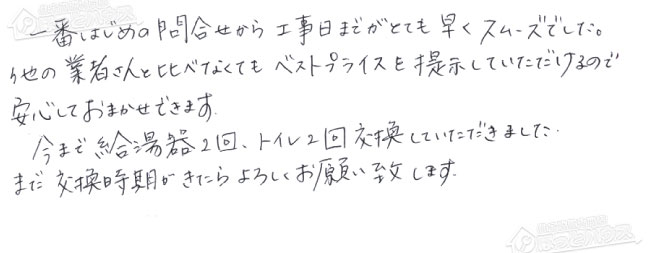 一番はじめの問合せから工事日までがとても早くスムーズでした。
他の業者さんと比べなくてもベストプライスを提示していただけるので
安心しておまかせできます。
今まで給湯器2回、トイレ2回交換していただきました。
また交換時期がきたらよろしくお願い致します。